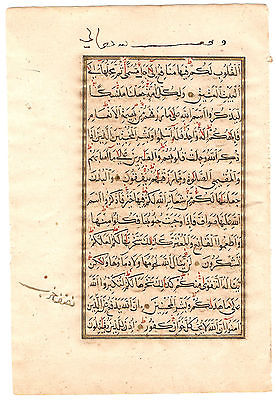 وقف لله تعالى
القلوب لكم فيها منافع الى اجل مسمى ثم محلها الى
البيت العتيق ولكل امة جعلنا منسكا
ليذكروا اسم الله على ما رزقهم من بهيمة الانعام
فالهكم اله واحد فله اسلموا وبشر المخبتين الذين اذا
ذكر الله وجلت قلوبهم والصابرين على ما اصابهم
والمقيمي الصلوة ومما رزقناهم ينفقون والبدن
جعلناها لكم من شعائر الله لكم فيها خير فاذكروا
اسم الله عليها صواف فاذا وجبت جنوبها فكلوا منها
واطعموا القانع والمعتر كذلك سخرناها لكم لعلكم
تشكرون لن ينال الله لحومها ولا دماؤها ولكن
يناله التقوى منكم كذلك سخرها لكم لتكبروا الله
على ما هديكم وبشر المحسنين ان الله يدافع عن الذين
امنوا ان الله لا يحب كل خوان كفور اذن للذين يقاتلون
نصف حزب